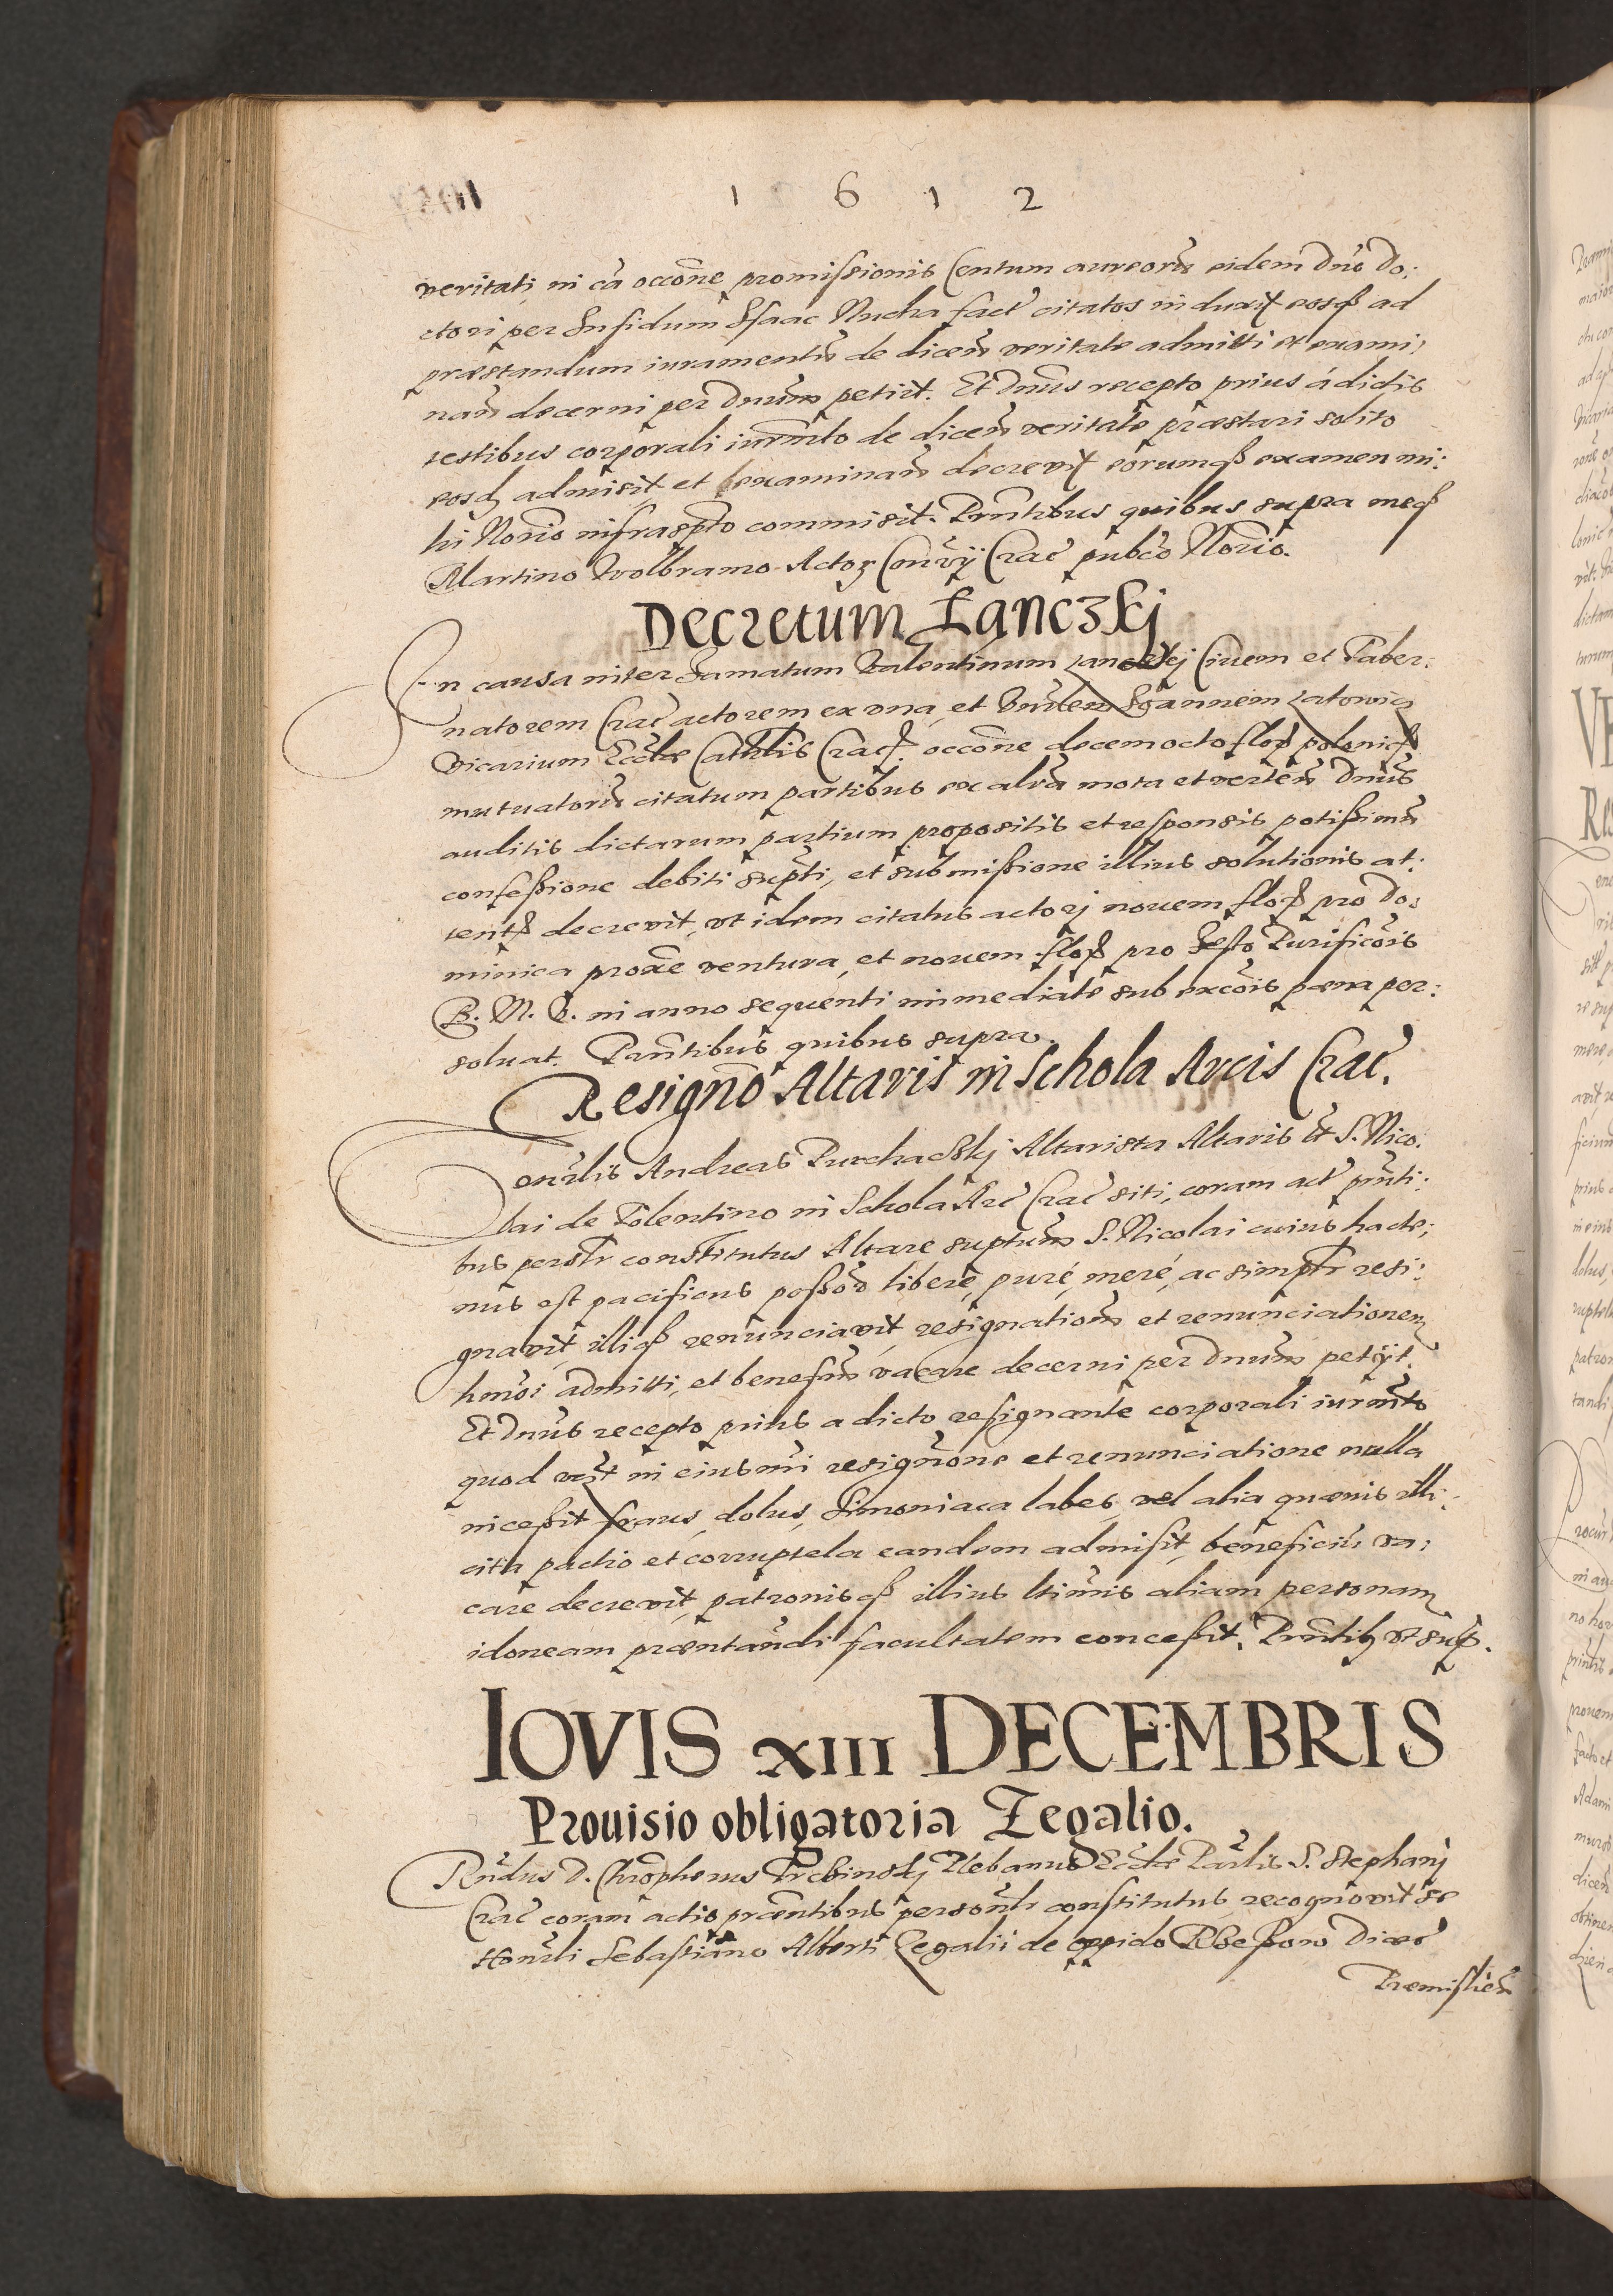 1 6 1 2
veritati, in cā occōne promissionis Centum aureorū eidem Dno Do:
ctori per Infidum Isaac Nucha fact citatos induxit eosq ad
præstandum iuramentū de dicen veritate admitti et exami:
nan decerni per Dnum petiit. Et Dnus recepto prius à dictis
testibus corporali iurmto de dicen veritate præstari solito
eosd admisit et examinan decrevit eorumq examen mi:
hi Norio infraspto commisit. Pntibus quibus supra meq
Martino Wolbramo Actor Conrÿ Crac pubco Norio.
Decretum Lanczkj
In causa inter Famatum Valentinum Lanczkj Ciuem et Taber:
natorem Crac actorem ex una, et Vnrlem Ioannem
Vicarium Eccłæ Cathlis Crac. occōne decemocto flor polonic
mutuatorū citatum partibus ex altra mota et verten Dnus
auditis dictarum partium propositis et responsis potissimū
confessione debiti supti, et submissione illius solutionis at:
tent decrevit, ut idem citatus actorj novem flor pro Do:
minica proxe ventura, et novem flor pro Festo Purificōis
B. M. V. in anno sequenti immediate sub excōis pœna per:
soluat. Pntibus quibus supra.
Resignō Altaris in Schola Arcis Crac.
Honrlis Andreas Purchachkj Altarista Altaris tt S. Nico:
lai de Tolentino in Schola Arc Crac siti, coram act pnti:
bus persłr constitutus Altare suptum S. Nicolai cuius hacte:
nus est pacificus possor liberè, purè, merè, ac simplr resi:
gnavit, illiq renunciavit, resignationem et renunciationem
hmoi admitti, et benefm vacare decerni per Dnum petiÿt.
Et Dnus recepto prius a dicto resignante corporali iurmto
quod in eiusmi resignone et renunciatione nulla
incessit fraus, dolus, Simoniaca labes, vel alia quævis illi:
cita pactio et corruptela eandem admisit, beneficiū va:
care decrevit, patronisq illius ltimis aliam personam
idoneam præntandi facultatem concessit. Pntib ut sup.
IOVIS XIII DECEMBRIS
Prouisio obligatoria Zegalio.
Rndus D. Chrophorus Trcbinskj Plebanus Eccłæ Parlis S. Stephanj
Crac coram actis præntibus personlr constitutus recognovit se
Honrli Sebastiano Alberti Zegalii de oppido Rzessow Diœc
Premislien